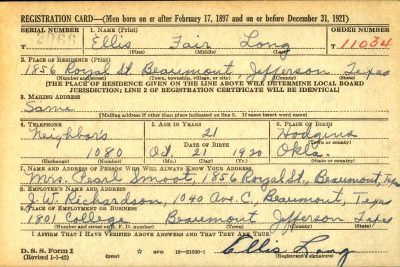 REGISTRATION CARD—(Men born on or after February 17, 1897 and on or before December 31, 1921)
SERIAL NUMBER 1. NAME (Print) ORDER NUMBER
Ellis Fair Long 11034
(First) (Middle) (Last)
2. PLACE OF RESIDENCE (Print)
1856 Royal St. Beaumont, Jefferson Texas
(Number and street) (Town, township, village, or city) (County) (State)
[THE PLACE OF RESIDENCE GIVEN ON THE LINE ABOVE WILL DETERMINE LOCAL BOARD
JURISDICTION; LINE 2 OF REGISTRATION CERTIFICATE WILL BE IDENTICAL]
3. MAILING ADDRESS
Same
[Mailing address if other than place indicated on line 2. If same insert word same]
4. TELEPHONE 5. AGE IN YEARS 6. PLACE OF BIRTH
Neighbors 21 Hodgins
DATE OF BIRTH (Town or county)
1080 Oct. 21 1920 Okla.
(Exchange) (Number) (Mo.) (Day) (Yr.) (State or country)
7. NAME AND ADDRESS OF PERSON WHO WILL ALWAYS KNOW YOUR ADDRESS
Mrs. Pearl Smoot, 1856 Royal St., Beaumont, Texas
8. EMPLOYER'S NAME AND ADDRESS
J.W. Richardson, 1040 Ave. C, Beaumont, Texas
9. PLACE OF EMPLOYMENT OR BUSINESS
1801 College Beaumont Jefferson Texas
(Number and street or R. F. D. number) (Town) (County) (State)
I AFFIRM THAT I HAVE VERIFIED ABOVE ANSWERS AND THAT THEY ARE TRUE.
D. S. S. Form 1 GPO Ellis Long
(Revised 1-1-42) (Registrant's signature)